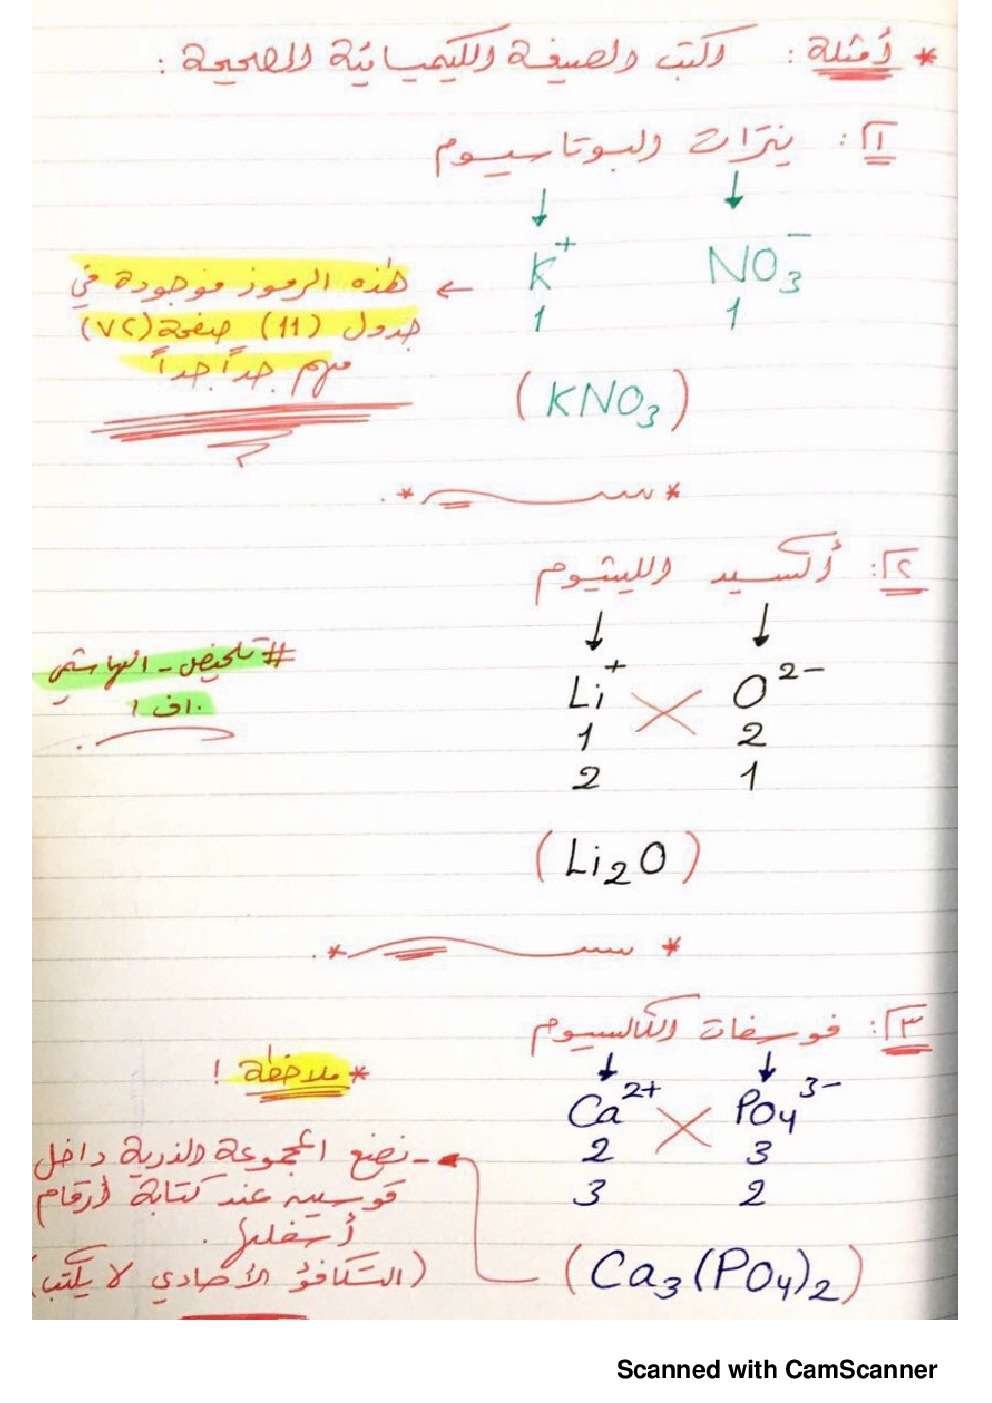 * أمثلة : اكتب الصيغة الكيميائية الصحيحة :
١ : نترات البوتاسيوم
↓ ↓
K⁺ NO₃⁻
1 1
← هذه الرموز موجودة في
جدول (11) صفحة (٧٢)
مهم جداً جداً
(KNO₃)
٢ : أكسيد الليثيوم
↓ ↓
Li⁺ O²⁻
1 2
2 1
# تلخيص - الهاشمي
(Li₂O)
٣ : فوسفات الكالسيوم
↓ ↓
Ca²⁺ PO₄³⁻
2 3
3 2
* ملاحظة !
- نضع المجموعة الذرية داخل
قوسين عند كتابة أرقام
أسفلها .
(التكافؤ الأحادي لا يكتب)
(Ca₃(PO₄)₂)
Scanned with CamScanner